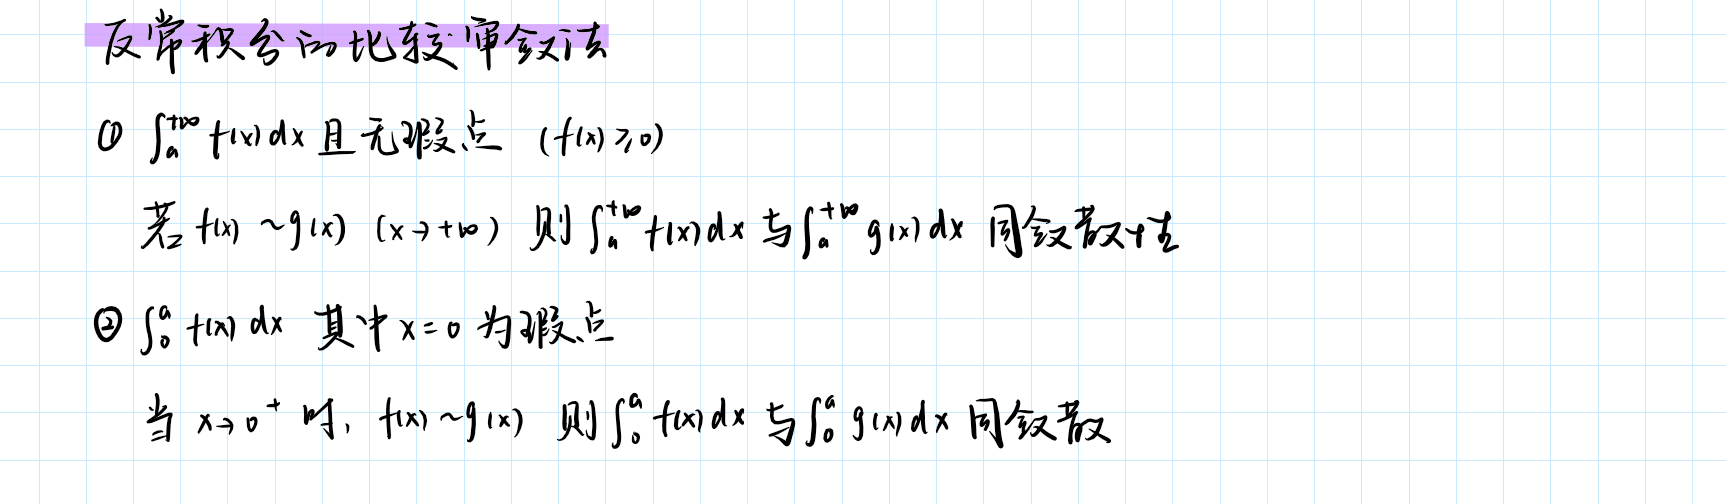 反常积分的比较审敛法
① ∫ₐ^{+∞} f(x) dx 且无瑕点 (f(x) ≥ 0)
若 f(x) ~ g(x) (x→+∞) 则 ∫ₐ^{+∞} f(x) dx 与 ∫ₐ^{+∞} g(x) dx 同敛散性
② ∫₀^a f(x) dx 其中 x=0 为瑕点
当 x→0⁺ 时, f(x) ~ g(x) 则 ∫₀^a f(x) dx 与 ∫₀^a g(x) dx 同敛散